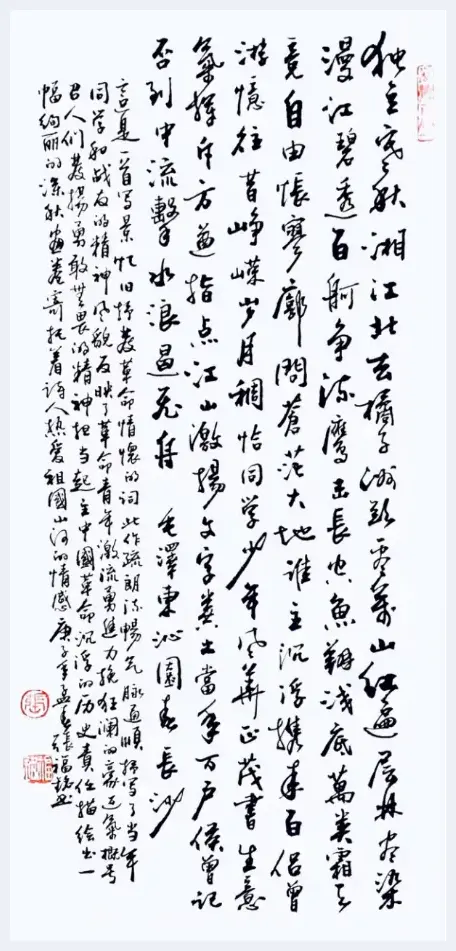 独立寒秋湘江北去橘子洲头看萬山红遍层林尽染
漫江碧透百舸争流鹰击长空鱼翔浅底萬类霜天
竞自由怅寥廓問蒼茫大地谁主沉浮携来百侣曾
游憶往昔峥嵘岁月稠恰同学少年风華正茂書生意
氣挥斥方遒指点江山激揚文字粪土當年万户侯曾记
否到中流擊水浪遏飛舟 毛澤東沁園春長沙
這是一首写景忆旧抒发革命情懷的词此作疏朗流暢气脉通顺抒写了当年
同学和战友的精神风貌反映了革命青年激流勇進力挽狂澜的豪迈氣概号
召人们發揚勇敢無畏的精神担当起主中國革命沉浮的历史责任描绘出一
幅绚丽的深秋画卷寄托着诗人热爱祖國山河的情感 庚子年孟春張福